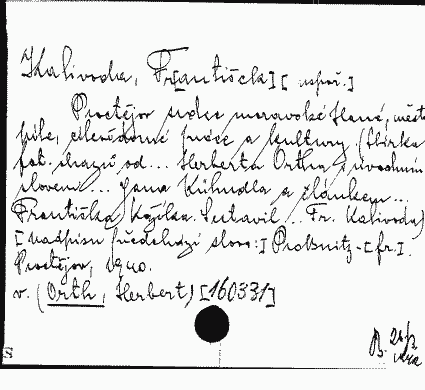 Kalivoda, Fr[antišek] [uspoř.]
Prostějov srdce moravské Hané, město
píle, cílevědomé práce a kultury (Sbírka
fot. obrazů od ... Herberta Ortha s úvodním
slovem ... Jana Kühndla a článkem ...
Františka Kožíka. Sestavil .. Fr. Kalivoda)
[Nadpisu předchází slovo:] Proßnitz - [fr.].
Prostějov, 1940.
v. (Orth, Herbert) [160331]
B.